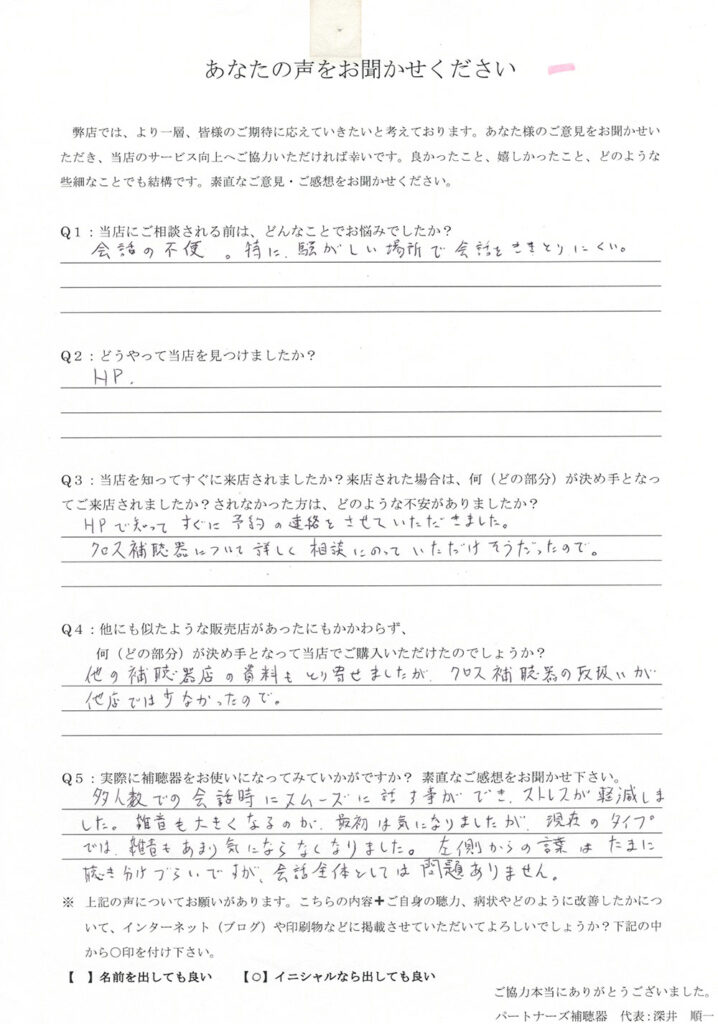 あなたの声をお聞かせください
弊店では、より一層、皆様のご期待に応えていきたいと考えております。あなた様のご意見をお聞かせい
ただき、当店のサービス向上へご協力いただければ幸いです。良かったこと、嬉しかったこと、どのような
些細なことでも結構です。素直なご意見・ご感想をお聞かせください。
Q1：当店にご相談される前は、どんなことでお悩みでしたか？
会話の不便。特に、騒がしい場所で会話をききとりにくい。
Q2：どうやって当店を見つけましたか？
HP.
Q3：当店を知ってすぐに来店されましたか？来店された場合は、何（どの部分）が決め手となっ
てご来店されましたか？されなかった方は、どのような不安がありましたか？
HPで知ってすぐに予約の連絡をさせていただきました。
クロス補聴器について詳しく相談にのっていただけそうだったので。
Q4：他にも似たような販売店があったにもかかわらず、
何（どの部分）が決め手となって当店でご購入いただけたのでしょうか？
他の補聴器店の資料もとり寄せましたが、クロス補聴器の取扱いが
他店では少なかったので。
Q5：実際に補聴器をお使いになってみていかがですか？ 素直なご感想をお聞かせ下さい。
多人数での会話時にスムーズに話す事ができ、ストレスが軽減しま
した。雑音も大きくなるのが、最初は気になりましたが、現在のタイプ
では、雑音もあまり気にならなくなりました。左側からの言葉はたまに
聴き分けづらいですが、会話全体としては問題ありません。
※ 上記の声についてお願いがあります。こちらの内容+ご自身の聴力、病状やどのように改善したかにつ
いて、インターネット（ブログ）や印刷物などに掲載させていただいてよろしいでしょうか？下記の中
から〇印を付け下さい。
【　】名前を出しても良い　【○】イニシャルなら出しても良い
ご協力本当にありがとうございました。
パートナーズ補聴器　代表：深井　順一